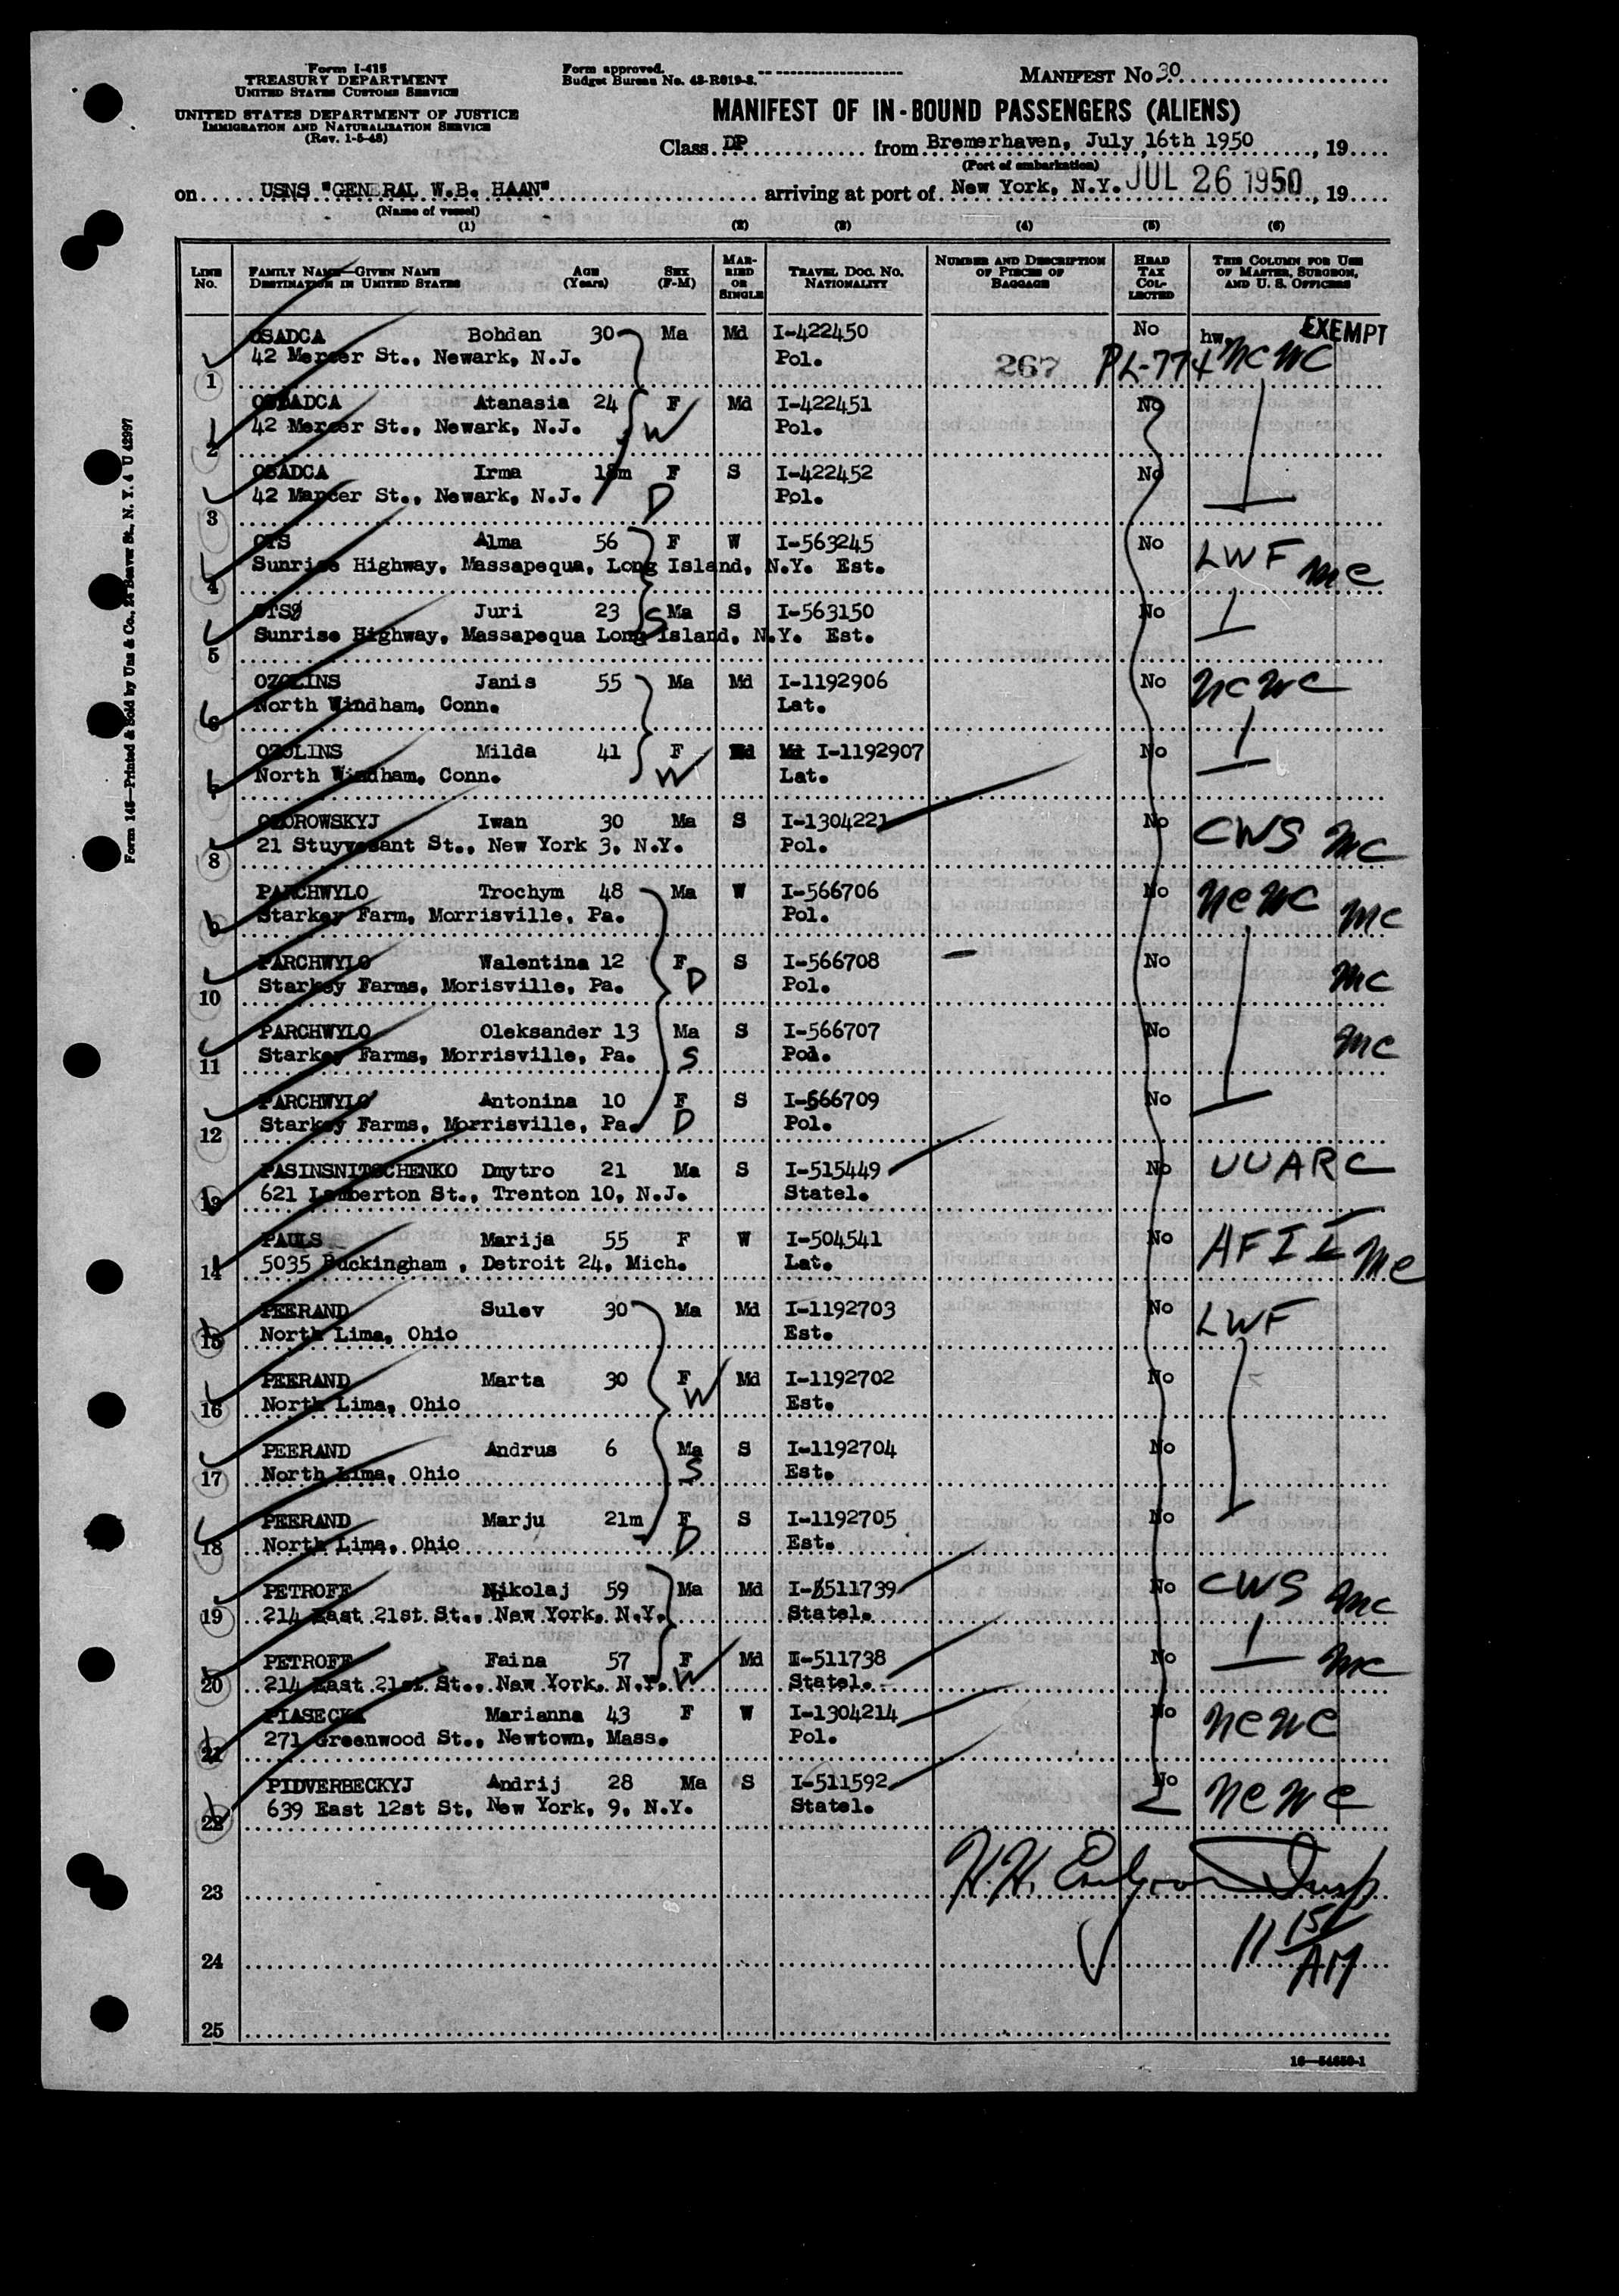 Form I-415
TREASURY DEPARTMENT
UNITED STATES CUSTOMS SERVICE
UNITED STATES DEPARTMENT OF JUSTICE
IMMIGRATION AND NATURALIZATION SERVICE
(Rev. 1-5-48)
Form approved.
Budget Bureau No. 43-R019-2.
MANIFEST No 30
MANIFEST OF IN-BOUND PASSENGERS (ALIENS)
Class DP from Bremerhaven, July 16th 1950, 19
(Port of embarkation)
on USNS "GENERAL W.B. HAAN" arriving at port of New York, N.Y. JUL 26 1950, 19
(Name of vessel)
(1) (2) (3) (4) (5) (6)
LINE No. FAMILY NAME—GIVEN NAME DESTINATION IN UNITED STATES AGE (Years) SEX (F-M) MARRIED OR SINGLE TRAVEL DOC. NO. NATIONALITY NUMBER AND DESCRIPTION OF PIECES OF BAGGAGE HEAD TAX COLLECTED THIS COLUMN FOR USE OF MASTER, SURGEON, AND U. S. OFFICERS
OSADCA Bohdan 30 Ma Md I-422450 No hw EXEMPT
1 42 Mercer St., Newark, N.J. Pol. 267 PL-774 NCWC
OSDADCA Atanasia 24 F Md I-422451 No
2 42 Mercer St., Newark, N.J. W Pol.
OSADCA Irma 18m F S I-422452 No
3 42 Marcer St., Newark, N.J. D Pol.
OTS Alma 56 F W I-563245 No LWF mc
4 Sunrise Highway, Massapequa, Long Island, N.Y. Est.
OTS Juri 23 S Ma S I-563150 No
5 Sunrise Highway, Massapequa Long Island, N.Y. Est.
OZOLINS Janis 55 Ma Md I-1192906 No NCWC
6 North Windham, Conn. Lat.
OZOLINS Milda 41 F Md I-1192907 No
7 North Windham, Conn. W Lat.
OZOROWSKYJ Iwan 30 Ma S I-1304221 No CWS mc
8 21 Stuyvesant St., New York 3, N.Y. Pol.
PARCHWYLO Trochym 48 Ma W I-566706 No NCWC mc
9 Starkey Farm, Morrisville, Pa. Pol.
PARCHWYLO Walentina 12 F S I-566708 No mc
10 Starkey Farms, Morisville, Pa. D Pol.
PARCHWYLO Oleksander 13 Ma S I-566707 No mc
11 Starkey Farms, Morrisville, Pa. S Pol.
PARCHWYLO Antonina 10 F S I-566709 No
12 Starkey Farms, Morrisville, Pa. D Pol.
PASINSNITSCHENKO Dmytro 21 Ma S I-515449 No UUARC
13 621 Lamberton St., Trenton 10, N.J. Statel.
PAULS Marija 55 F W I-504541 No AFII mc
14 5035 Buckingham , Detroit 24, Mich. Lat.
PEERAND Sulev 30 Ma Md I-1192703 No LWF
15 North Lima, Ohio Est.
PEERAND Marta 30 F Md I-1192702 No
16 North Lima, Ohio W Est.
PEERAND Andrus 6 Ma S I-1192704 No
17 North Lima, Ohio S Est.
PEERAND Marju 21m F S I-1192705 No
18 North Lima, Ohio D Est.
PETROFF Nikolaj 59 Ma Md I-511739 No CWS mc
19 214 East 21st St., New York, N.Y. Statel.
PETROFF Faina 57 F Md I-511738 No mc
20 214 East 21st St., New York, N.Y. W Statel.
PIASECKA Marianna 43 F W I-1304214 No NCWC
21 271 Greenwood St., Newtown, Mass. Pol.
PIDVERBECKYJ Andrij 28 Ma S I-511592 No NCWC
22 639 East 12st St, New York, 9, N.Y. Statel.
H.H. Insp
23
11 15 AM
24
25
16—54650-1
Form 145—Printed & Sold by Unz & Co., 24 Beaver St., N. Y. 4 U 42997